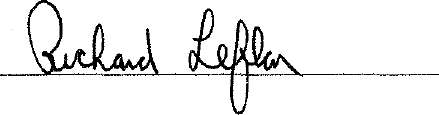 Richard Leflar